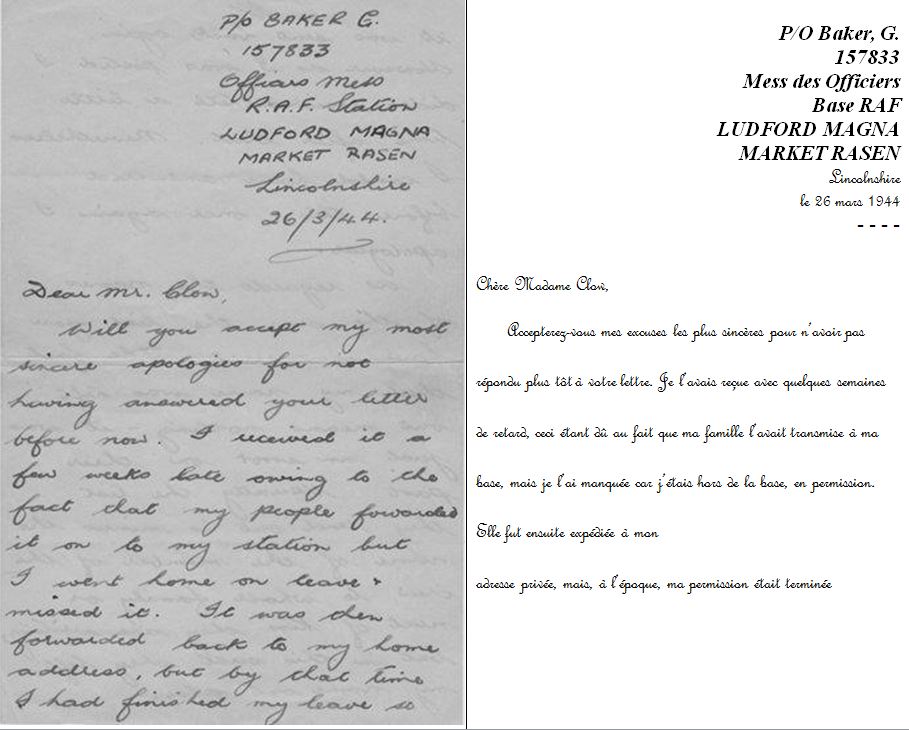 P/o BAKER G.
157833
Officers Mess
R.A.F. Station
LUDFORD MAGNA
MARKET RASEN
Lincolnshire
26/3/44.
Dear Mr. Clow,
Will you accept my most
sincere apologies for not
having answered your letter
before now. I received it a
few weeks late owing to the
fact that my people forwarded
it on to my station but
I went home on leave &
missed it. It was then
forwarded back to my home
address, but by that time
I had finished my leave so
P/O Baker, G.
157833
Mess des Officiers
Base RAF
LUDFORD MAGNA
MARKET RASEN
Lincolnshire
le 26 mars 1944
- - - -
Chère Madame Clow,
Accepterez-vous mes excuses les plus sincères pour n'avoir pas
répondu plus tôt à votre lettre. Je l'avais reçue avec quelques semaines
de retard, ceci étant dû au fait que ma famille l'avait transmise à ma
base, mais je l'ai manquée car j'étais hors de la base, en permission.
Elle fut ensuite expédiée à mon
adresse privée, mais, à l'époque, ma permission était terminée